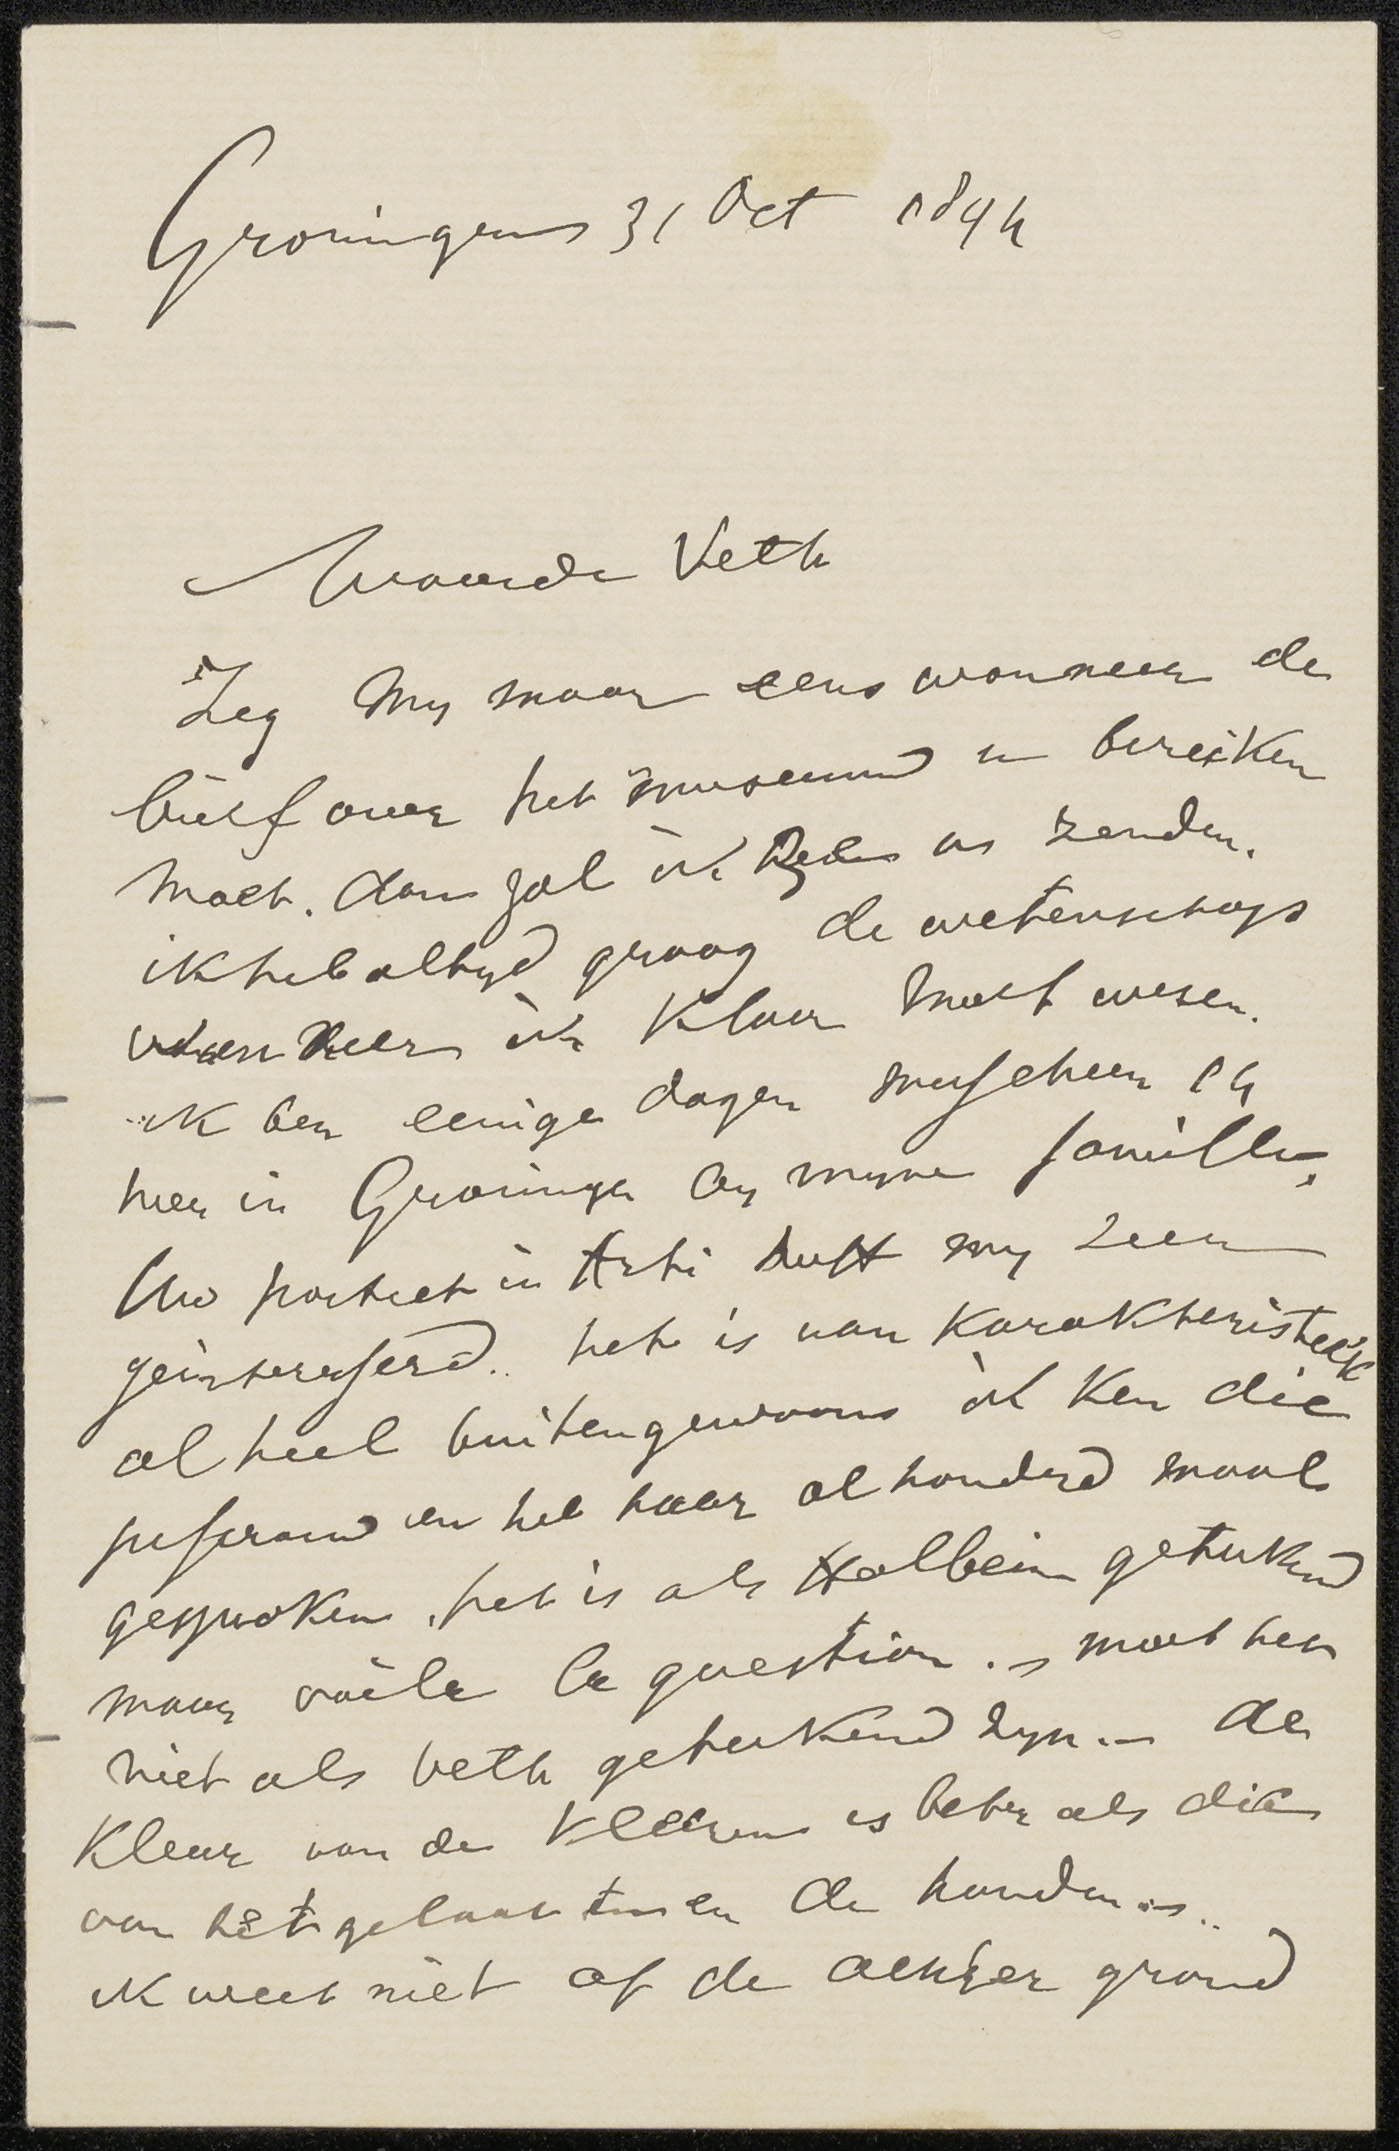 Groningen 31 Oct 1894
Waarde Veth
Zeg my maar eens wanneer de
brief over het museum u bereiken
moet. dan zal ik u zenden.
ik heb altyd graag de wetenschap
wanneer ik klaar moet wesen.
ik ben eenige dagen
hier in Groningen by myne familie.
Uw portret in Arti heeft my zeer
geinteresserd.. het is van karakteristiek
al heel buitengewoon ik ken die
jufrouw en heb haar al honderd maal
gesproken. het is als Holbein getekend
maar voila la question. moet het
niet als Veth getekend zyn. de
kleur van de kleeren is beter als die
van het gelaat en de handen..
ik weet niet of de achter grond